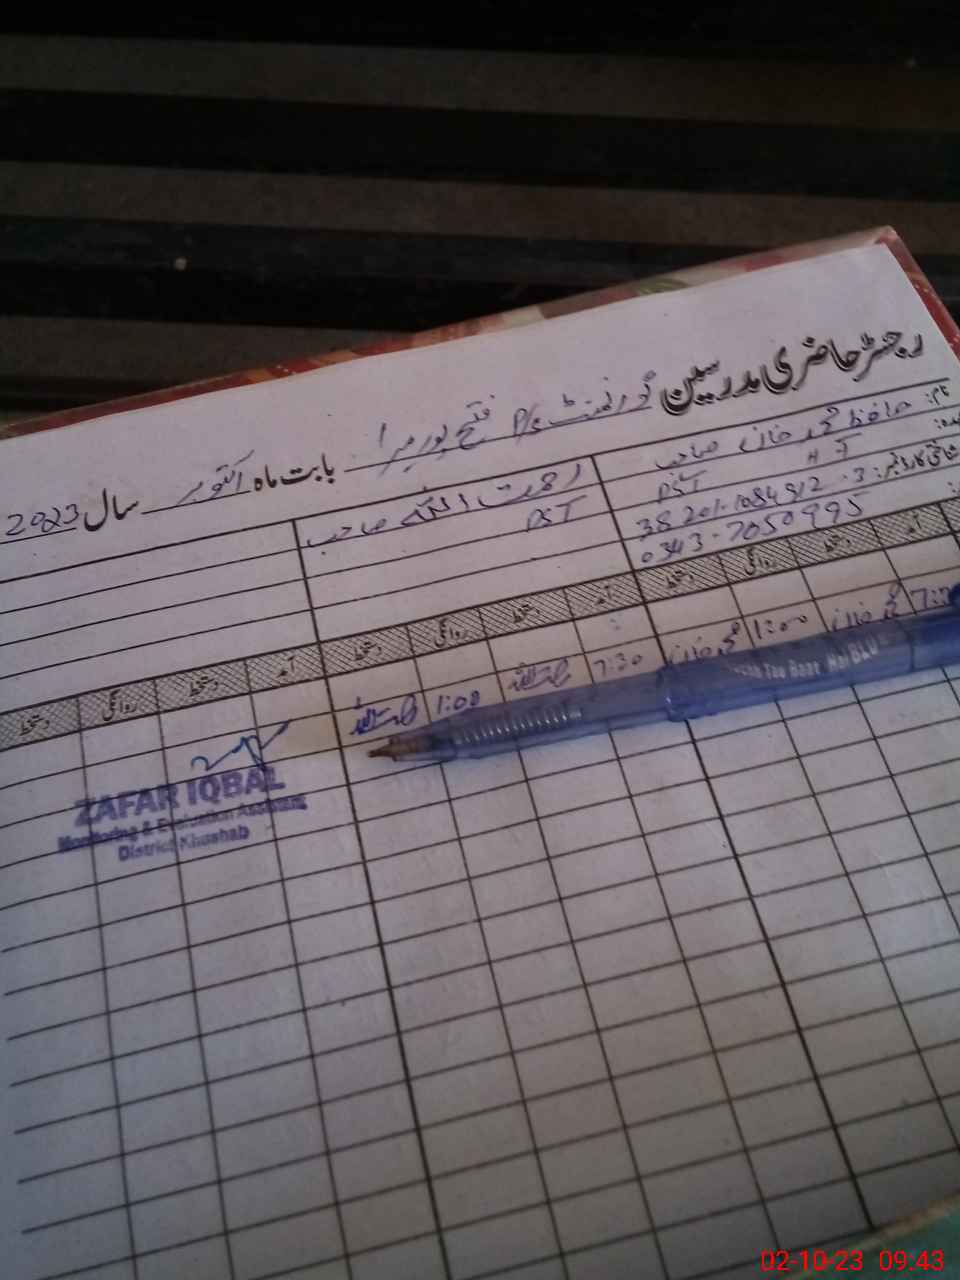 رجسٹر حاضری مدرسین گورنمنٹ P/S فتح پور میرا بابت ماہ اکتوبر سال 2023
نام: حافظ محمد خان صاحب
رحمت اللہ صاحب
PST HT
PST
شناختی کارڈ نمبر: 38201-1084912-3
0343-7050995
آمد دستخط روانگی دستخط آمد دستخط روانگی دستخط آمد دستخط روانگی دستخط
محمد خان 1:00 محمد خان
7:30 رحمت اللہ 1:00 رحمت اللہ
ZAFAR IQBAL
Monitoring & Evaluation Assistant
District Khushab
02-10-23 09:43